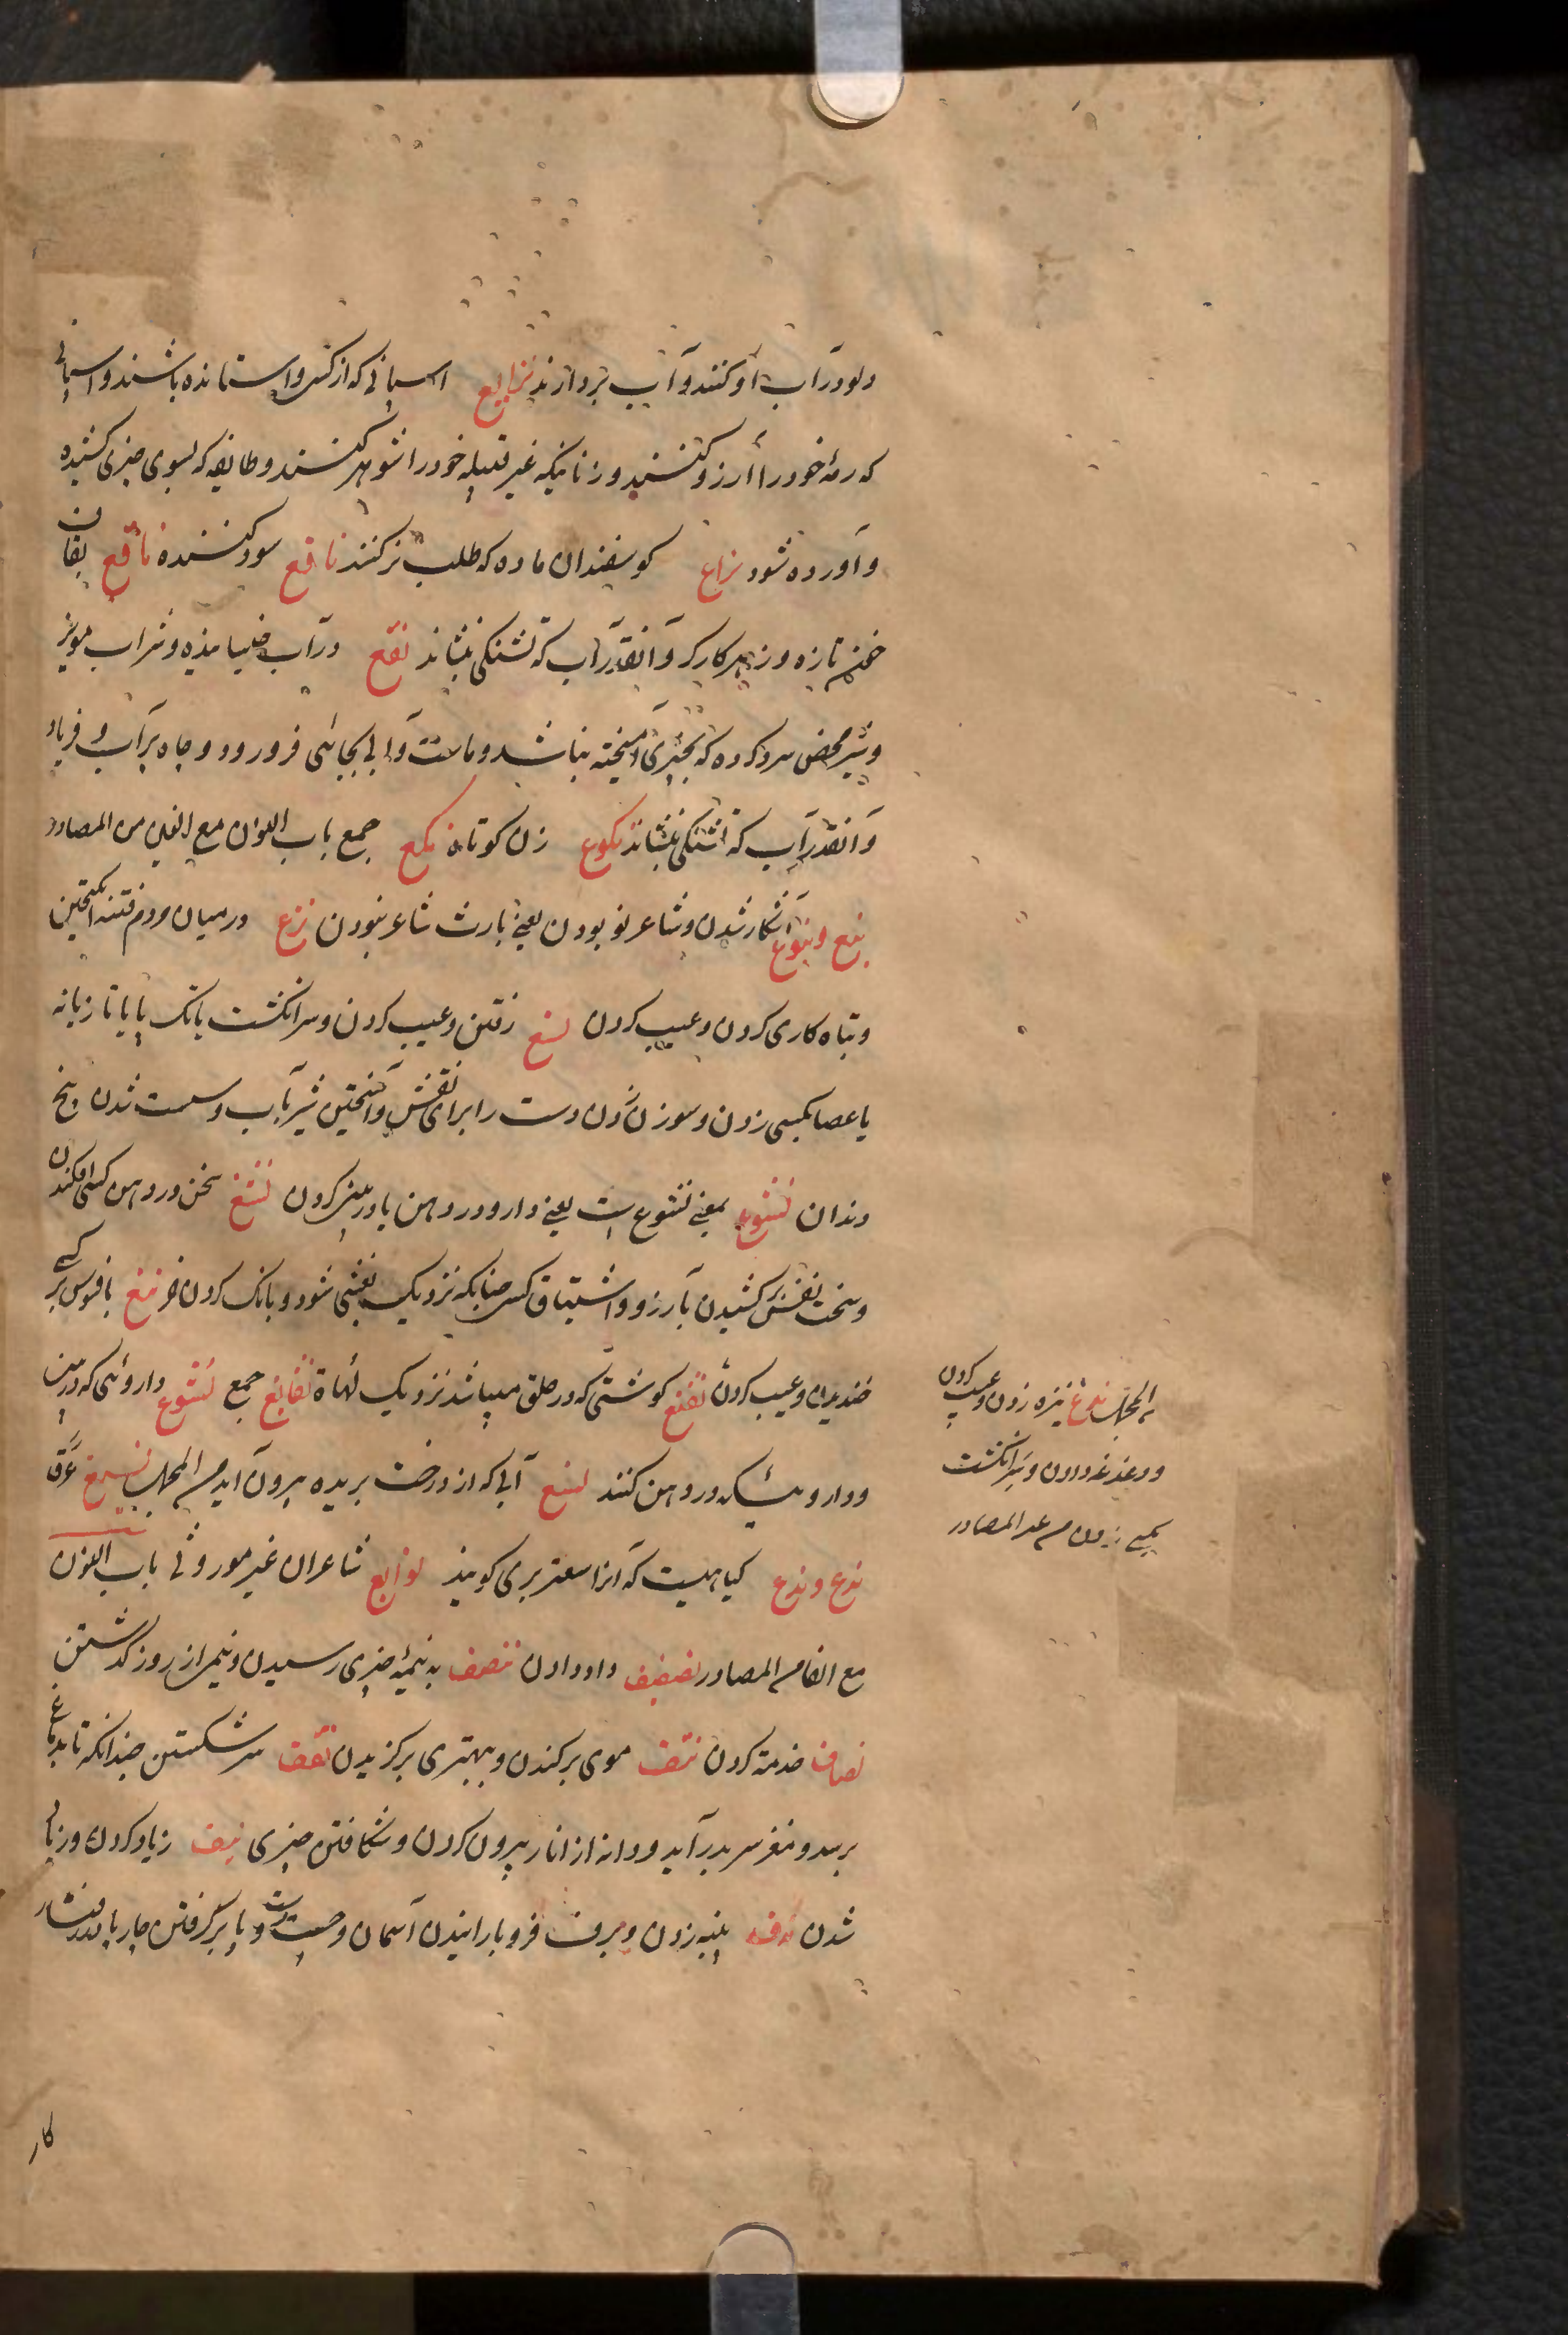 دلو در آب او کنند و آب بردارند نزایع اسپانی که از کس واستانده باشند و اسپانی
که رمهٔ خود را آرزو کنند و زنانیکه غیر قبیله خود را شوهر کنند و طایفه که بسوی چیزی کشیده
و آورده شود نزاع کوسفندان ماده که طلب نر کنند نافع سود کننده ناقع
خون تازه و زهر کارکر و آنقدر آب که تشنکی بنشاند نقع در آب خیسانیده و شراب مویز
و شیر محض سرد کرده که بچیزی آمیخته نباشد و ماست و آبی بجائی فرو رود و چاه پر آب و فریاد
و آنقدر آب که تشنکی بنشاند نکوع زن کوتاه نکع جمع باب النون مع الغین من المصادر
نبغ و نبوغ آشکار شدن و شاعر نو بودن یعنی بارث شاعر نبودن نزغ در میان مردم فتنه انکیختن
و تباه کاری کردن و عیب کردن نسغ رفتن و عیب کردن و سر انکشت یا تازیانه
یا عصا بکسی زدن و سوزن زدن دست را برای نقش و آمیختن شیر بآب و سست شدن بیخ
دندان نشوغ بمعنی نشوع است یعنی دارو در دهن یا در بینی کردن نشغ سخن در دهن کسی افکندن
و سخت نفس بر کشیدن بآرزو و اشتیاق کسی چنانکه نزدیک بغشی شود و بانک کردن خر نمغ بافسوس بر کسی
خندیدن و عیب کردن نغنغ کوشتی که در حلق میباشد نزدیک لهاة نغانغ جمع نشوغ داروئی که در بینی
و داروئیکه در دهن کنند نسغ آبی که از درخت بریده بیرون آید م المجمل نسیغ عرق
ندغ و ندغ کیاهیست که آنرا سعتر بری کویند نوابغ شاعران غیر موروثی باب النون
مع الفا م المصادر تنصیف داد دادن تنصف به نیمهٔ چیزی رسیدن و نیم از روز کذشتن
نصاف خدمة کردن نتف موی برکندن و بهتری برکزیدن نقف سر شکستن چندانکه تا بدماغ
برسد و مغز سر بدر آید و دانه از انار بیرون کردن و شکافتن چیزی نیف زیاد کردن و زیاد
شدن ندف پنبه زدن و برف فرو بارانیدن آسمان و دست و پا بر کرفتن چارپا در رفتار
م المجمل ندغ نیزه زدن و عیب کردن
و دغدغه دادن و سر انکشت
بکسی زدن م عد المصادر
کار